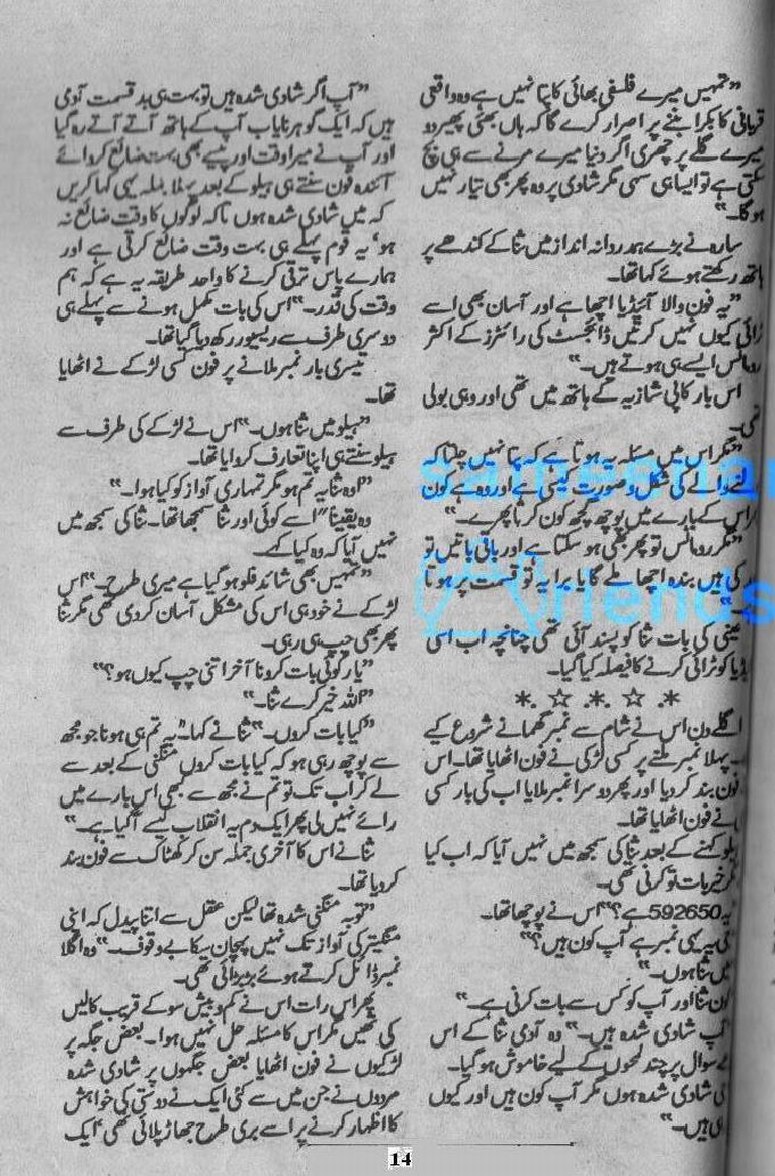 "تمہیں میرے فلسفی بھائی کا پتا نہیں ہے وہ واقعی
قربانی کا بکرا بننے پر اصرار کرے گا کہ ہاں بھئی پھیر دو
میرے گلے پر چھری اگر دنیا میرے مرنے سے ہی بچ
سکتی ہے تو ایسا ہی سہی مگر شادی پر وہ پھر بھی تیار نہیں
ہو گا۔"
سارہ نے بڑے ہمدردانہ انداز میں ثنا کے کندھے پر
ہاتھ رکھتے ہوئے کہا تھا۔
"یہ فون والا آئیڈیا اچھا ہے اور آسان بھی اسے
ٹرائی کیوں نہیں کرتیں ڈائجسٹ کی رائٹرز کے اکثر
رومانس ایسے ہی ہوتے ہیں۔"
اس بار کاپی شازیہ کے ہاتھ میں تھی اور وہی بولی
تھی۔
"مگر اس میں مسئلہ یہ ہوتا ہے کہ پتا نہیں چلتا کہ
والے کی شکل و صورت کیسی ہے اور وہ ہے کون
اس کے بارے میں پوچھ گچھ کون کرتا پھرے۔"
"مگر رومانس تو پھر بھی ہو سکتا ہے اور باقی باتیں تو
کی ہیں بندہ اچھا ملے گا یا برا یہ تو قسمت پر ہوتا
عینی کی بات ثنا کو پسند آئی تھی چنانچہ اب اسی
آئیڈیا کو ٹرائی کرنے کا فیصلہ کیا گیا۔
*. ☆ .*. ☆ .*
اگلے دن اس نے شام سے نمبر گھمانے شروع کیے
پہلا نمبر ملنے پر کسی لڑکی نے فون اٹھایا تھا۔ اس
فون بند کر دیا اور پھر دوسرا نمبر ملایا اب کی بار کسی
نے فون اٹھایا تھا۔
ہیلو کہنے کے بعد ثنا کی سمجھ میں نہیں آیا کہ اب کیا
مگر خیر بات تو کرنی تھی۔
"یہ 592650 ہے؟" اس نے پوچھا تھا۔
"جی یہ یہی نمبر ہے آپ کون ہیں؟"
"میں ثنا ہوں۔"
"کون ثنا اور آپ کو کس سے بات کرنی ہے۔"
"آپ شادی شدہ ہیں۔" وہ آدمی ثنا کے اس
سوال پر چند لمحوں کے لیے خاموش ہو گیا۔
شادی شدہ ہوں مگر آپ کون ہیں اور کیوں
رہی ہیں۔"
"آپ اگر شادی شدہ ہیں تو بہت ہی بد قسمت آدمی
ہیں کہ ایک گوہر نایاب آپ کے ہاتھ آتے آتے رہ گیا
اور آپ نے میرا وقت اور پیسے بھی بہت ضائع کروائے
آئندہ فون سنتے ہی ہیلو کے بعد پہلا جملہ یہی کہا کریں
کہ میں شادی شدہ ہوں تاکہ لوگوں کا وقت ضائع نہ
ہو، یہ قوم پہلے ہی بہت وقت ضائع کرتی ہے اور
ہمارے پاس ترقی کرنے کا واحد طریقہ یہ ہے کہ ہم
وقت کی قدر۔" اس کی بات مکمل ہونے سے پہلے ہی
دوسری طرف سے ریسیور رکھ دیا گیا تھا۔
تیسری بار نمبر ملانے پر فون کسی لڑکے نے اٹھایا
تھا۔
"ہیلو میں ثنا ہوں۔" اس نے لڑکے کی طرف سے
ہیلو سنتے ہی اپنا تعارف کروایا تھا۔
"اوہ ثنا یہ تم ہو مگر تمہاری آواز کو کیا ہوا۔"
وہ یقیناً اسے کوئی اور ثنا سمجھا تھا۔ ثنا کی سمجھ میں
نہیں آیا کہ وہ کیا کہے
"تمہیں بھی شائد فلو ہو گیا ہے میری طرح۔" اس
لڑکے نے خود ہی اس کی مشکل آسان کر دی تھی مگر ثنا
پھر بھی چپ ہی رہی۔
"یار کوئی بات کرو نا آخر اتنی چپ کیوں ہو؟"
"اللہ خیر کرے ثنا۔"
"کیا بات کروں۔" ثنا نے کہا۔ "یہ تم ہی ہو نا جو مجھ
سے پوچھ رہی ہو کہ کیا بات کروں منگنی کے بعد سے
لے کر اب تک تو تم نے مجھ سے کبھی اس بارے میں
رائے نہیں لی پھر ایک دم یہ انقلاب کیسے آ گیا ہے۔"
ثنا نے اس کا آخری جملہ سن کر کھٹاک سے فون بند
کر دیا تھا۔
"توبہ منگنی شدہ تھا لیکن عقل سے اتنا پیدل کہ اپنی
منگیتر کی آواز تک نہیں پہچان سکا بے وقوف۔" وہ اگلا
نمبر ڈائل کرتے ہوئے بڑبڑائی تھی۔
پھر اس رات اس نے کم و بیش سو کے قریب کالیں
کی تھیں مگر اس کا مسئلہ حل نہیں ہوا۔ بعض جگہ پر
لڑکیوں نے فون اٹھایا بعض جگہوں پر شادی شدہ
مردوں نے جن میں سے کئی ایک نے دوستی کی خواہش
کا اظہار کرنے پر اسے بری طرح جھاڑ پلائی تھی، ایک
14